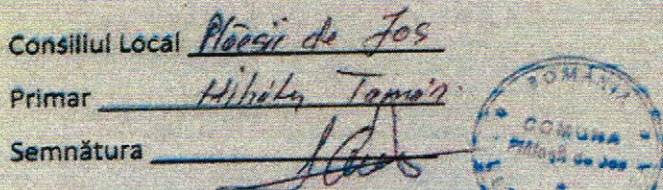 Consiliul Local Plăeșii de Jos
Primar Mihály Tamás
Semnătura
ROMÂNIA
COMUNA
Plăieșii de Jos